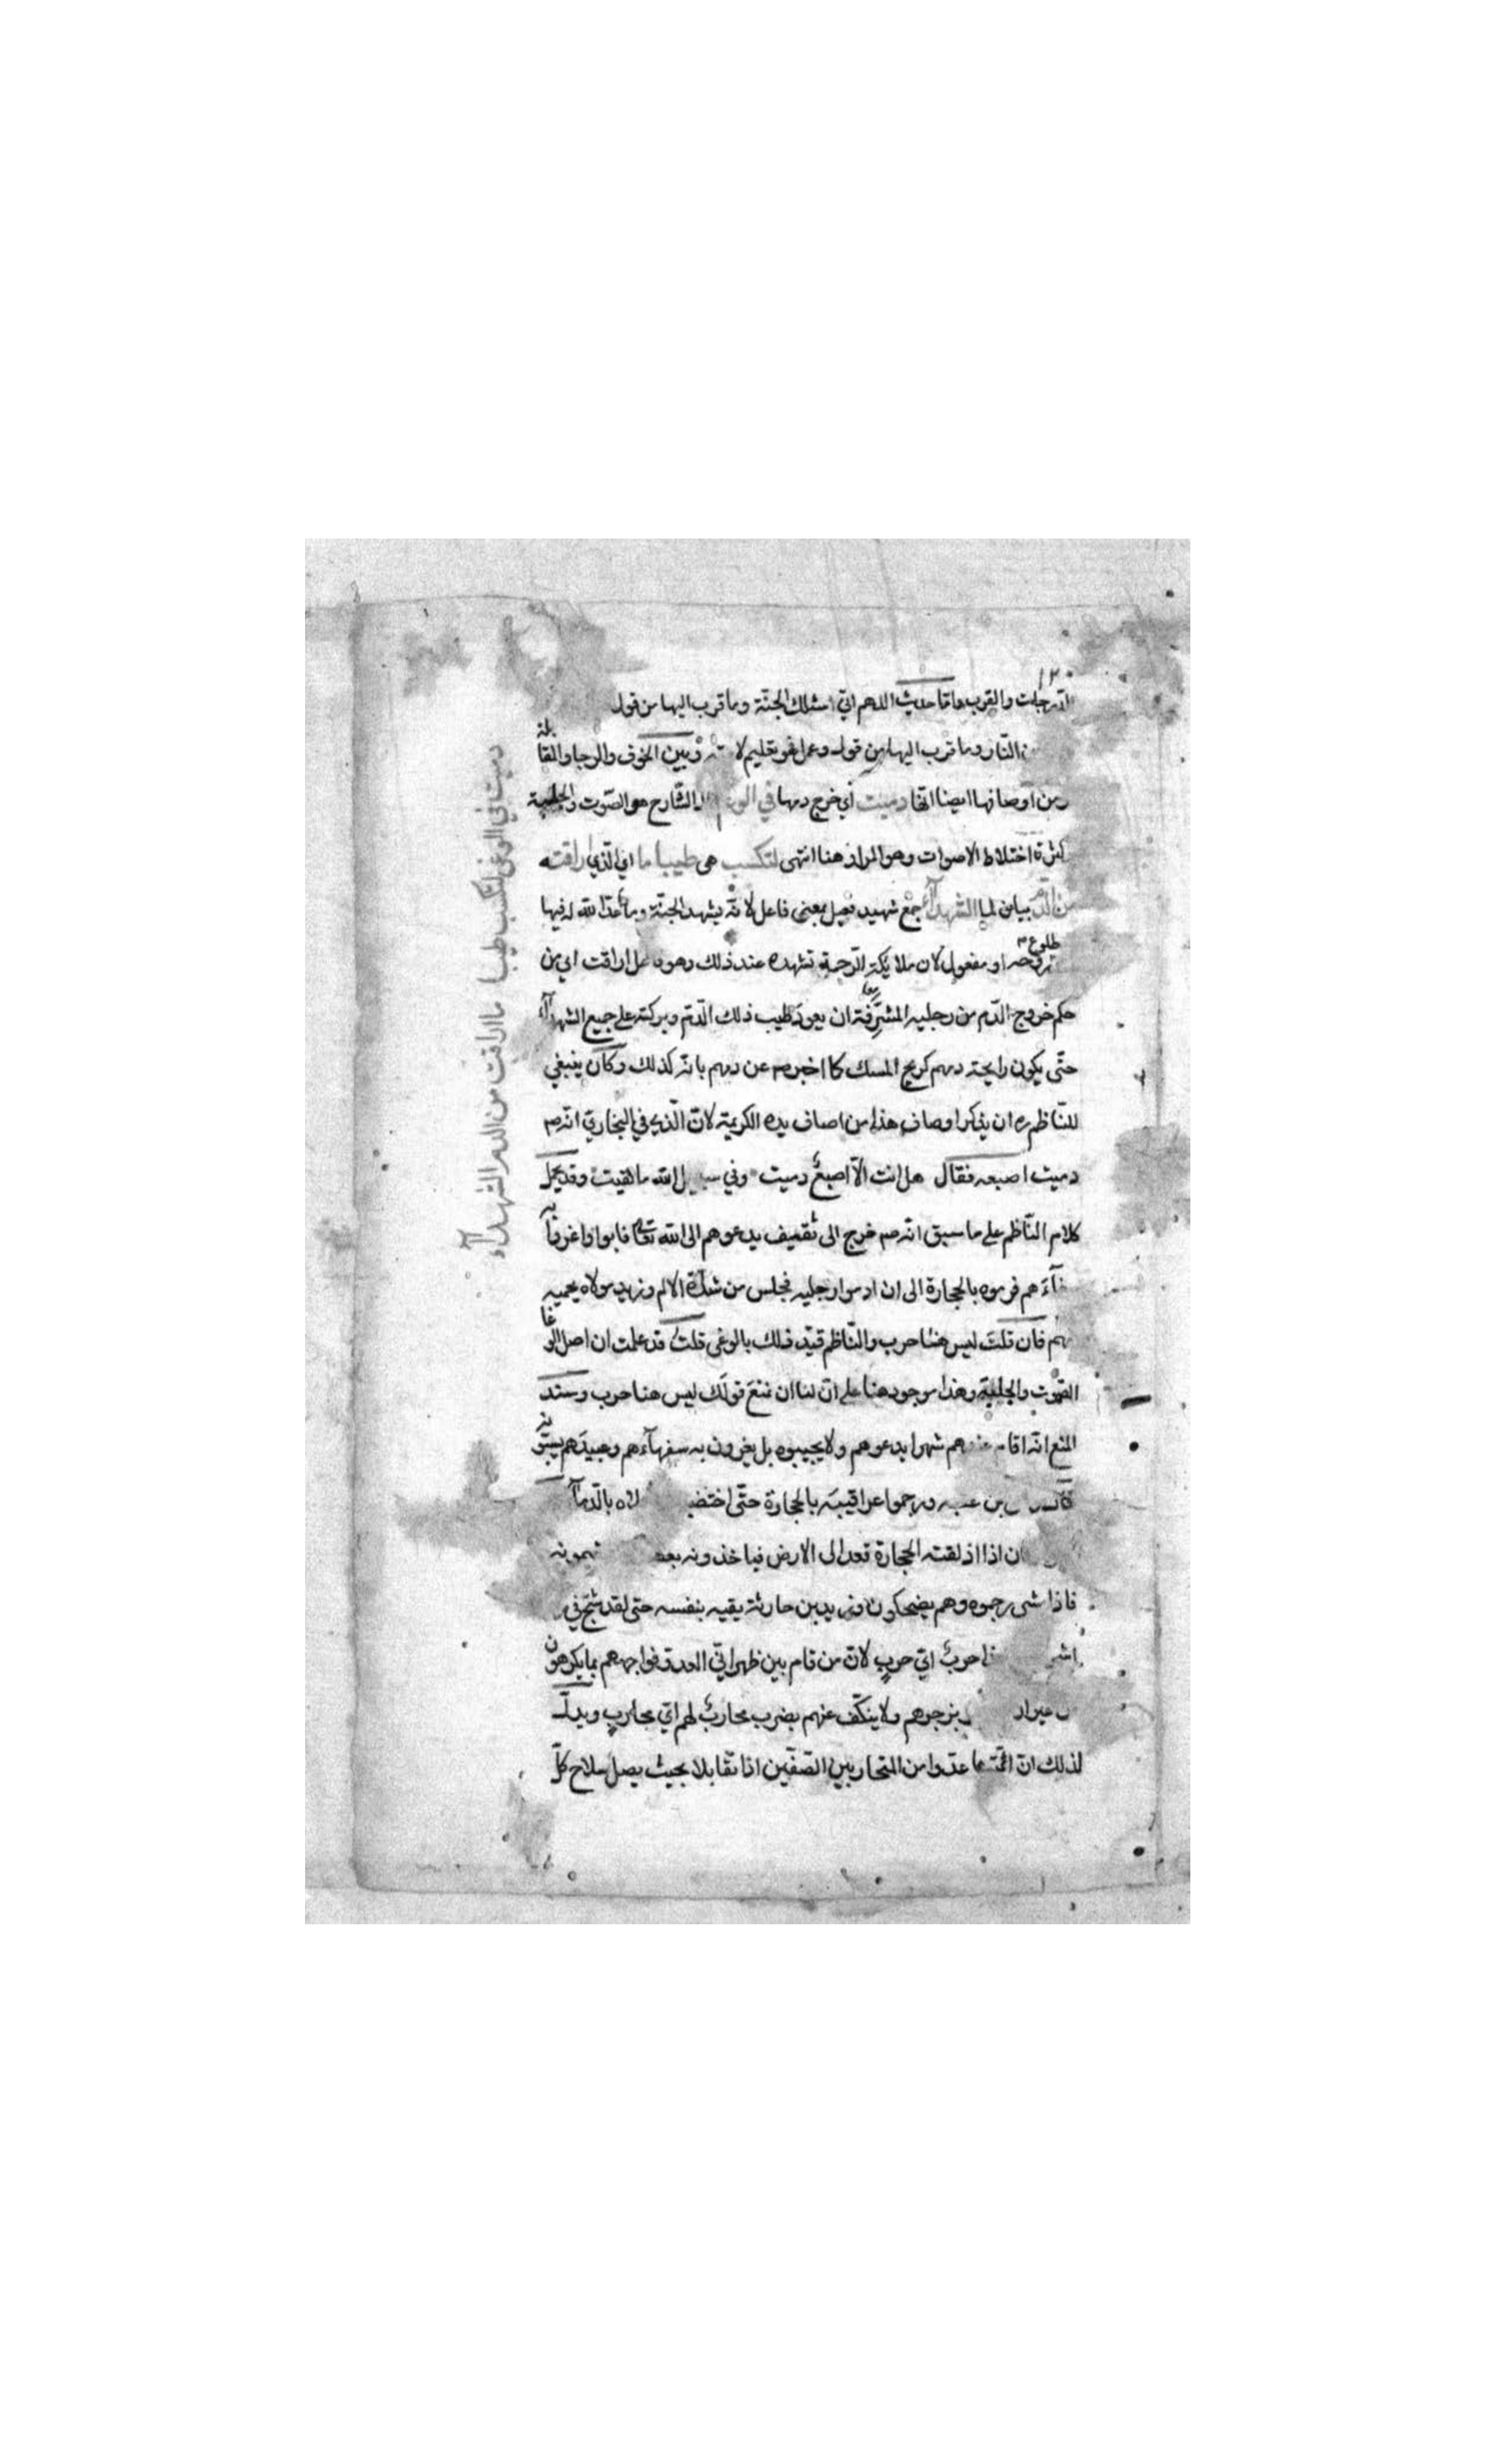 ١٢٠
والقرب واما حديث اللهم اني اسئلك الجنة وما قرب اليها من قول
النار وما قرب اليها من قول وعمل فهو تعليم وبين الخوف والرجا والمقابلة
ومن اوصافها ايضا انها دميت اي خرج دمها في الشارح هو الصوت والجلبة
كثرة اختلاط الاصوات وهو المراد هنا انتهى لتكسب هي طيبا ما اي الذي اراقته
من الدم بيان لما الشهدآء جمع شهيد فعيل بمعنى فاعل لانه يشهد الجنة وما أعد الله له فيها
طلوع روحه او مفعول لان ملايكة الرحمة تشهده عند ذلك وهو اراقت اي من
حكم خروج الدم من رجليه المشرفة ان يعود طيب ذلك الدم وبركته على جميع الشهدآء
حتى يكون رايحة دمهم كريح المسك كما اخبر صم عن دمهم بانه كذلك وكان ينبغي
للناظم ره ان يذكر اوصاف هذا من اصاف يده الكريمة لان الذي في البخاري انه صم
دميت اصبعه فقال هل انت الا اصبع دميت وفي سبيل الله ما لقيت وقد يحمل
كلام الناظم على ما سبق انه صم خرج الى ثقيف يدعوهم الى الله تعالى فابوا واغروا به
فرموه بالحجارة الى ان ادموا رجليه فجلس من شدة الالم وزيد مولاه يحميه
فان قلت ليس هنا حرب والناظم قيد ذلك بالوغى قلت قد علمت ان اصل الوغا
الصوت والجلبة وهذا موجود هنا على ان لنا ان نمنع قولك ليس هنا حرب وسند
المنع انه اقام عندهم شهرا يدعوهم ولا يجيبوه بل يغرون به سفهآءهم وعبيدهم يسبونه
بن عقبه ورجموا عراقيبه بالحجارة حتى اختضب بالدمآ
اذا اذلقته الحجارة قعد الى الارض فياخذونه
فاذا مشى رجموه وهم يضحكون وزيد بن حارثة يقيه بنفسه حتى لقد شج في
حرب اي حرب لان من قام بين ظهراني العدو فواجههم بما يكرهون
يزجرهم ولا ينكف عنهم بضرب محارب لهم اي محارب ويدل
لذلك ان عدوا من المتحاربين الصفين اذا تقابلا بحيث يصل سلاح كل
دميت في الوغى لتكسب طيبا ما اراقت من الدم الشهدآء